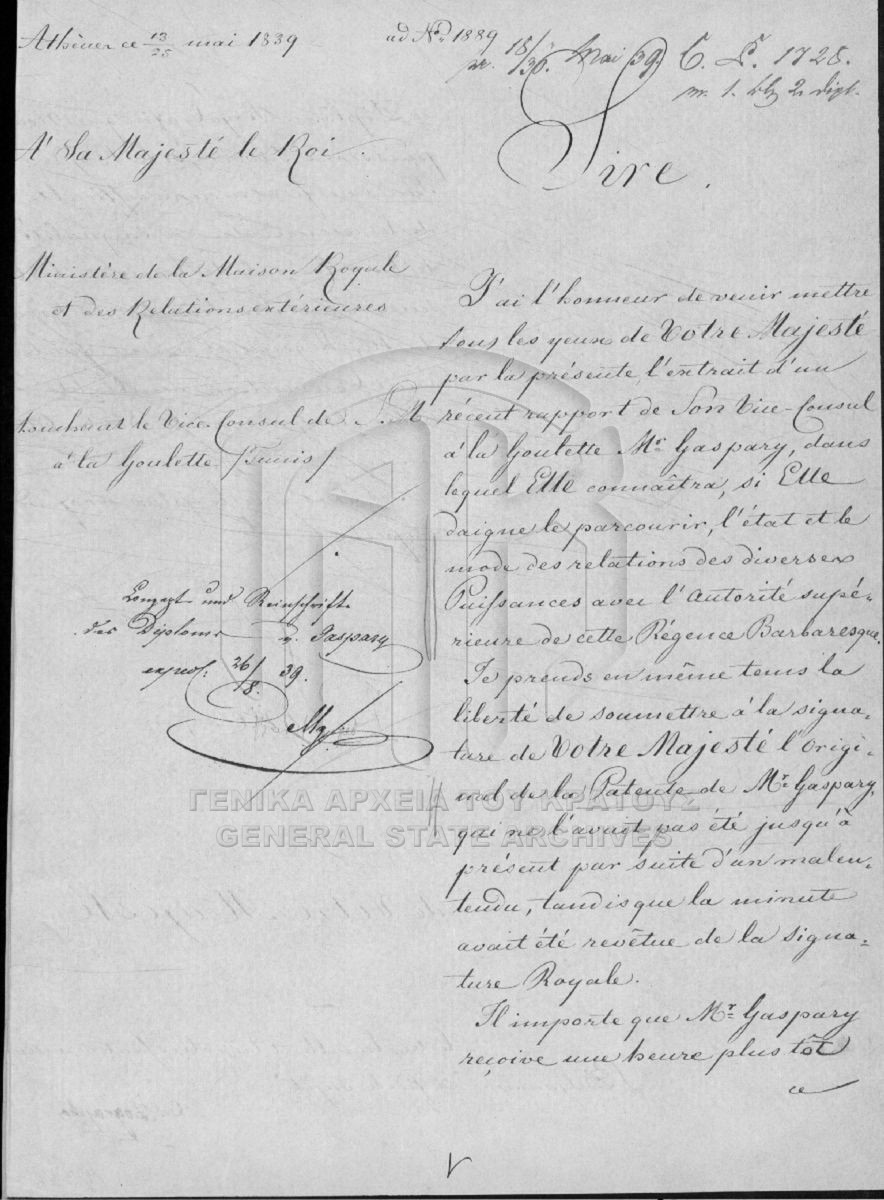 Athènes ce 13/25 mai 1839
ad No. 1889
pr. 18/30. Mai 39. C. P. 1728.
m. 1. Blg 2. Dipl.
A' Sa Majesté le Roi.
Sire.
Ministère de la Maison Royale
et des Relations extérieures
touchant le Vice-Consul de S. M
à la Goulette /Tunis/
J'ai l'honneur de venir mettre
sous les yeux de Votre Majesté
par la présente, l'extrait d'un
récent rapport de Son Vice-Consul
à la Goulette Mr. Gaspary, dans
lequel Elle connaîtra, si Elle
daigne le parcourir, l'état et le
mode des relations des diverses
Puissances avec l'Autorité supé=
rieure de cette Régence Barbaresque.
Je prends en même tems la
liberté de soumettre à la signa=
ture de Votre Majesté l'origi=
nal de la Patente de Mr. Gaspary,
qui ne l'avait pas été jusqu'à
présent par suite d'un malen=
tendu, tandis que la minute
avait été revêtue de la signa=
ture Royale.
Il importe que Mr. Gaspary
reçoive une heure plus tôt
ce
Konzept und Reinschrift
des Diploms v. Gaspary
exped. 26/8. 39.
ΓΕΝΙΚΑ ΑΡΧΕΙΑ ΤΟΥ ΚΡΑΤΟΥΣ
GENERAL STATE ARCHIVES